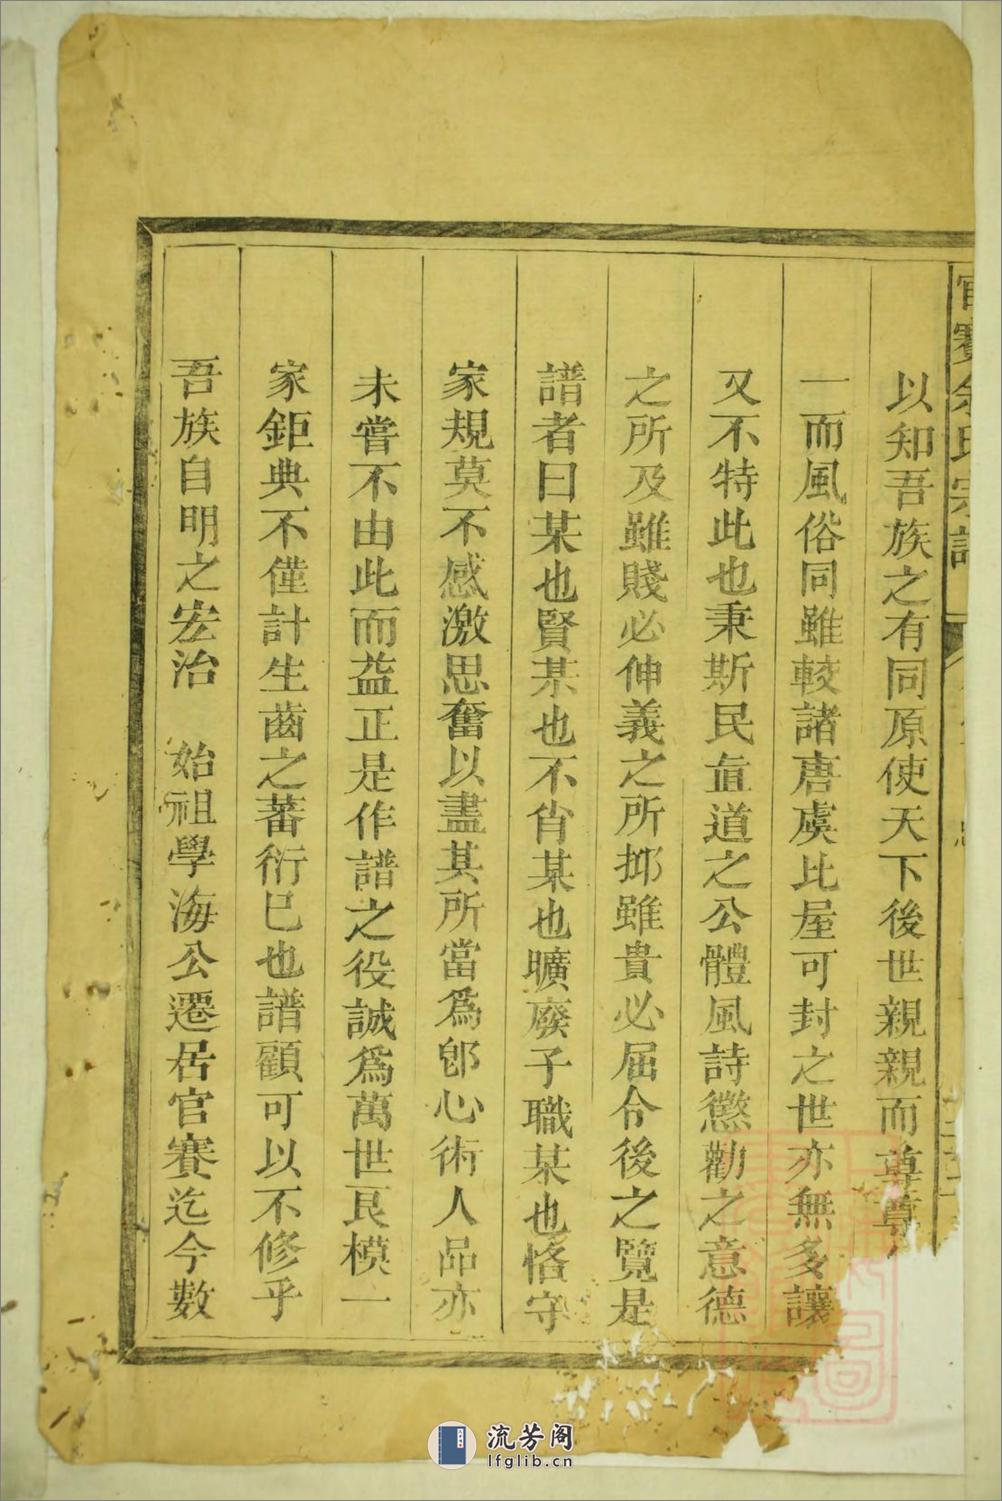 官賽余氏宗譜
以知吾族之有同原使天下後世親親而尊尊
一而風俗同雖較諸唐虞比屋可封之世亦無多讓
又不特此也秉斯民直道之公體風詩懲勸之意德
之所及雖賤必伸義之所抑雖貴必屈令後之覽是
譜者曰某也賢某也不肖某也曠廢子職某也恪守
家規莫不感激思奮以盡其所當爲卽心術人品亦
未嘗不由此而益正是作譜之役誠爲萬世良模一
家鉅典不僅計生齒之蕃衍已也譜顧可以不修乎
吾族自明之宏治 始祖學海公遷居官賽迄今數
流芳阁
lfglib.cn